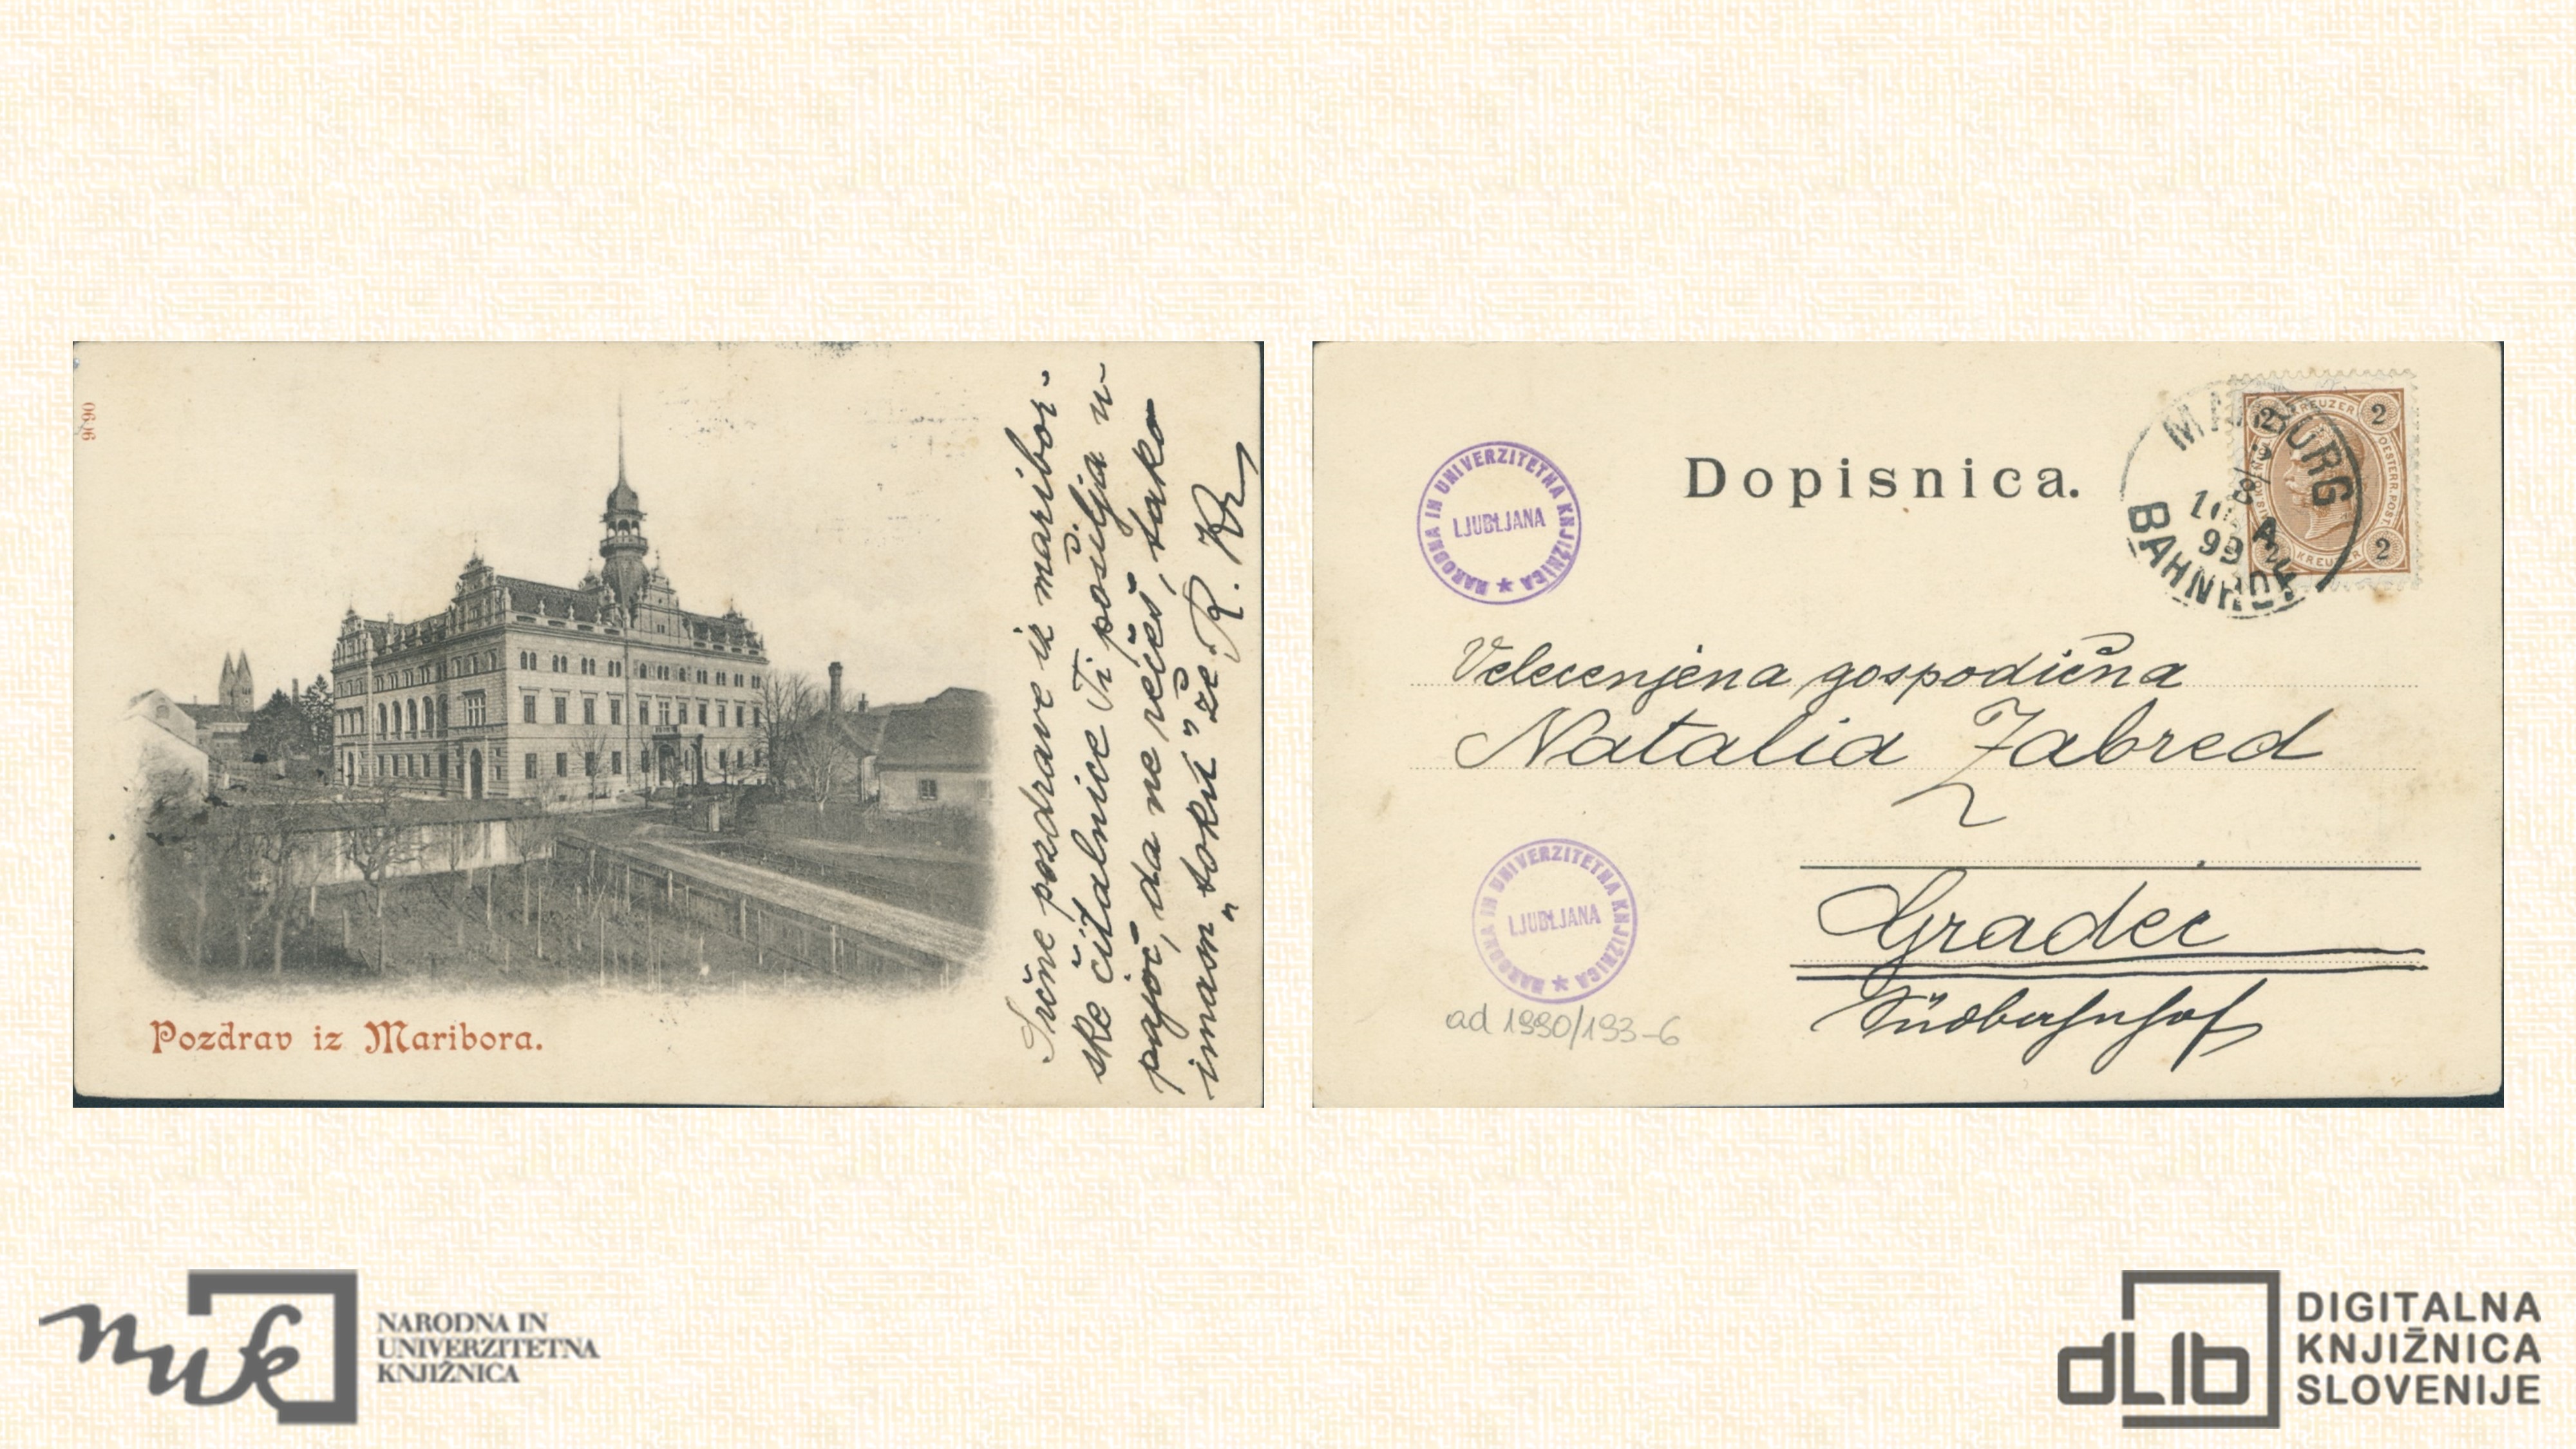 9090
Srčne pozdrave iz maribor-
ske čitalnice Ti pošilja u-
pajoč, da ne rečeš, tako
imam „toku" že. R. Kr
Pozdrav iz Maribora.
Dopisnica.
NARODNA IN UNIVERZITETNA KNJIŽNICA
LJUBLJANA
MARBURG
99
BAHNHOF
KREUZER
2 2
OESTERR. POST.
2
KREUZER
Velecenjena gospodična
Natalia Zabred
Gradec
Südbahnhof
NARODNA IN UNIVERZITETNA KNJIŽNICA
LJUBLJANA
ad 1990/193-6
nuk
NARODNA IN
UNIVERZITETNA
KNJIŽNICA
dLib
DIGITALNA
KNJIŽNICA
SLOVENIJE